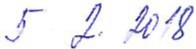 5 2. 2018